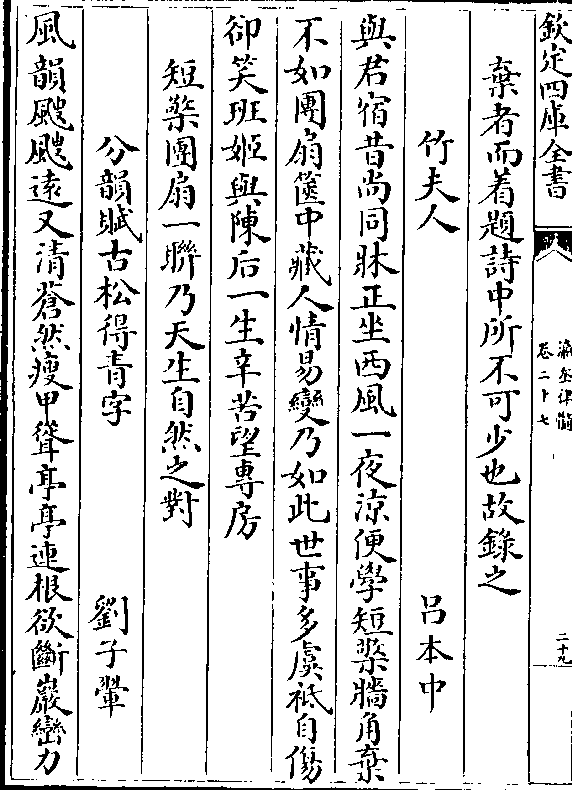 欽定四庫全書
瀛奎律髓
卷二十七
二十九
棄者而着題詩中所不可少也故錄之
竹夫人　吕本中
與君宿昔尚同牀正坐西風一夜涼便學短檠牆角棄
不如團扇篋中藏人情易變乃如此世事多虞祗自傷
卻笑班姬與陳后一生辛苦望專房
短檠團扇一聯乃天生自然之對
分韻賦古松得青字　劉子翬
風韻飕飕遠又清蒼然瘦甲聳亭亭連根欲斷巖巒力